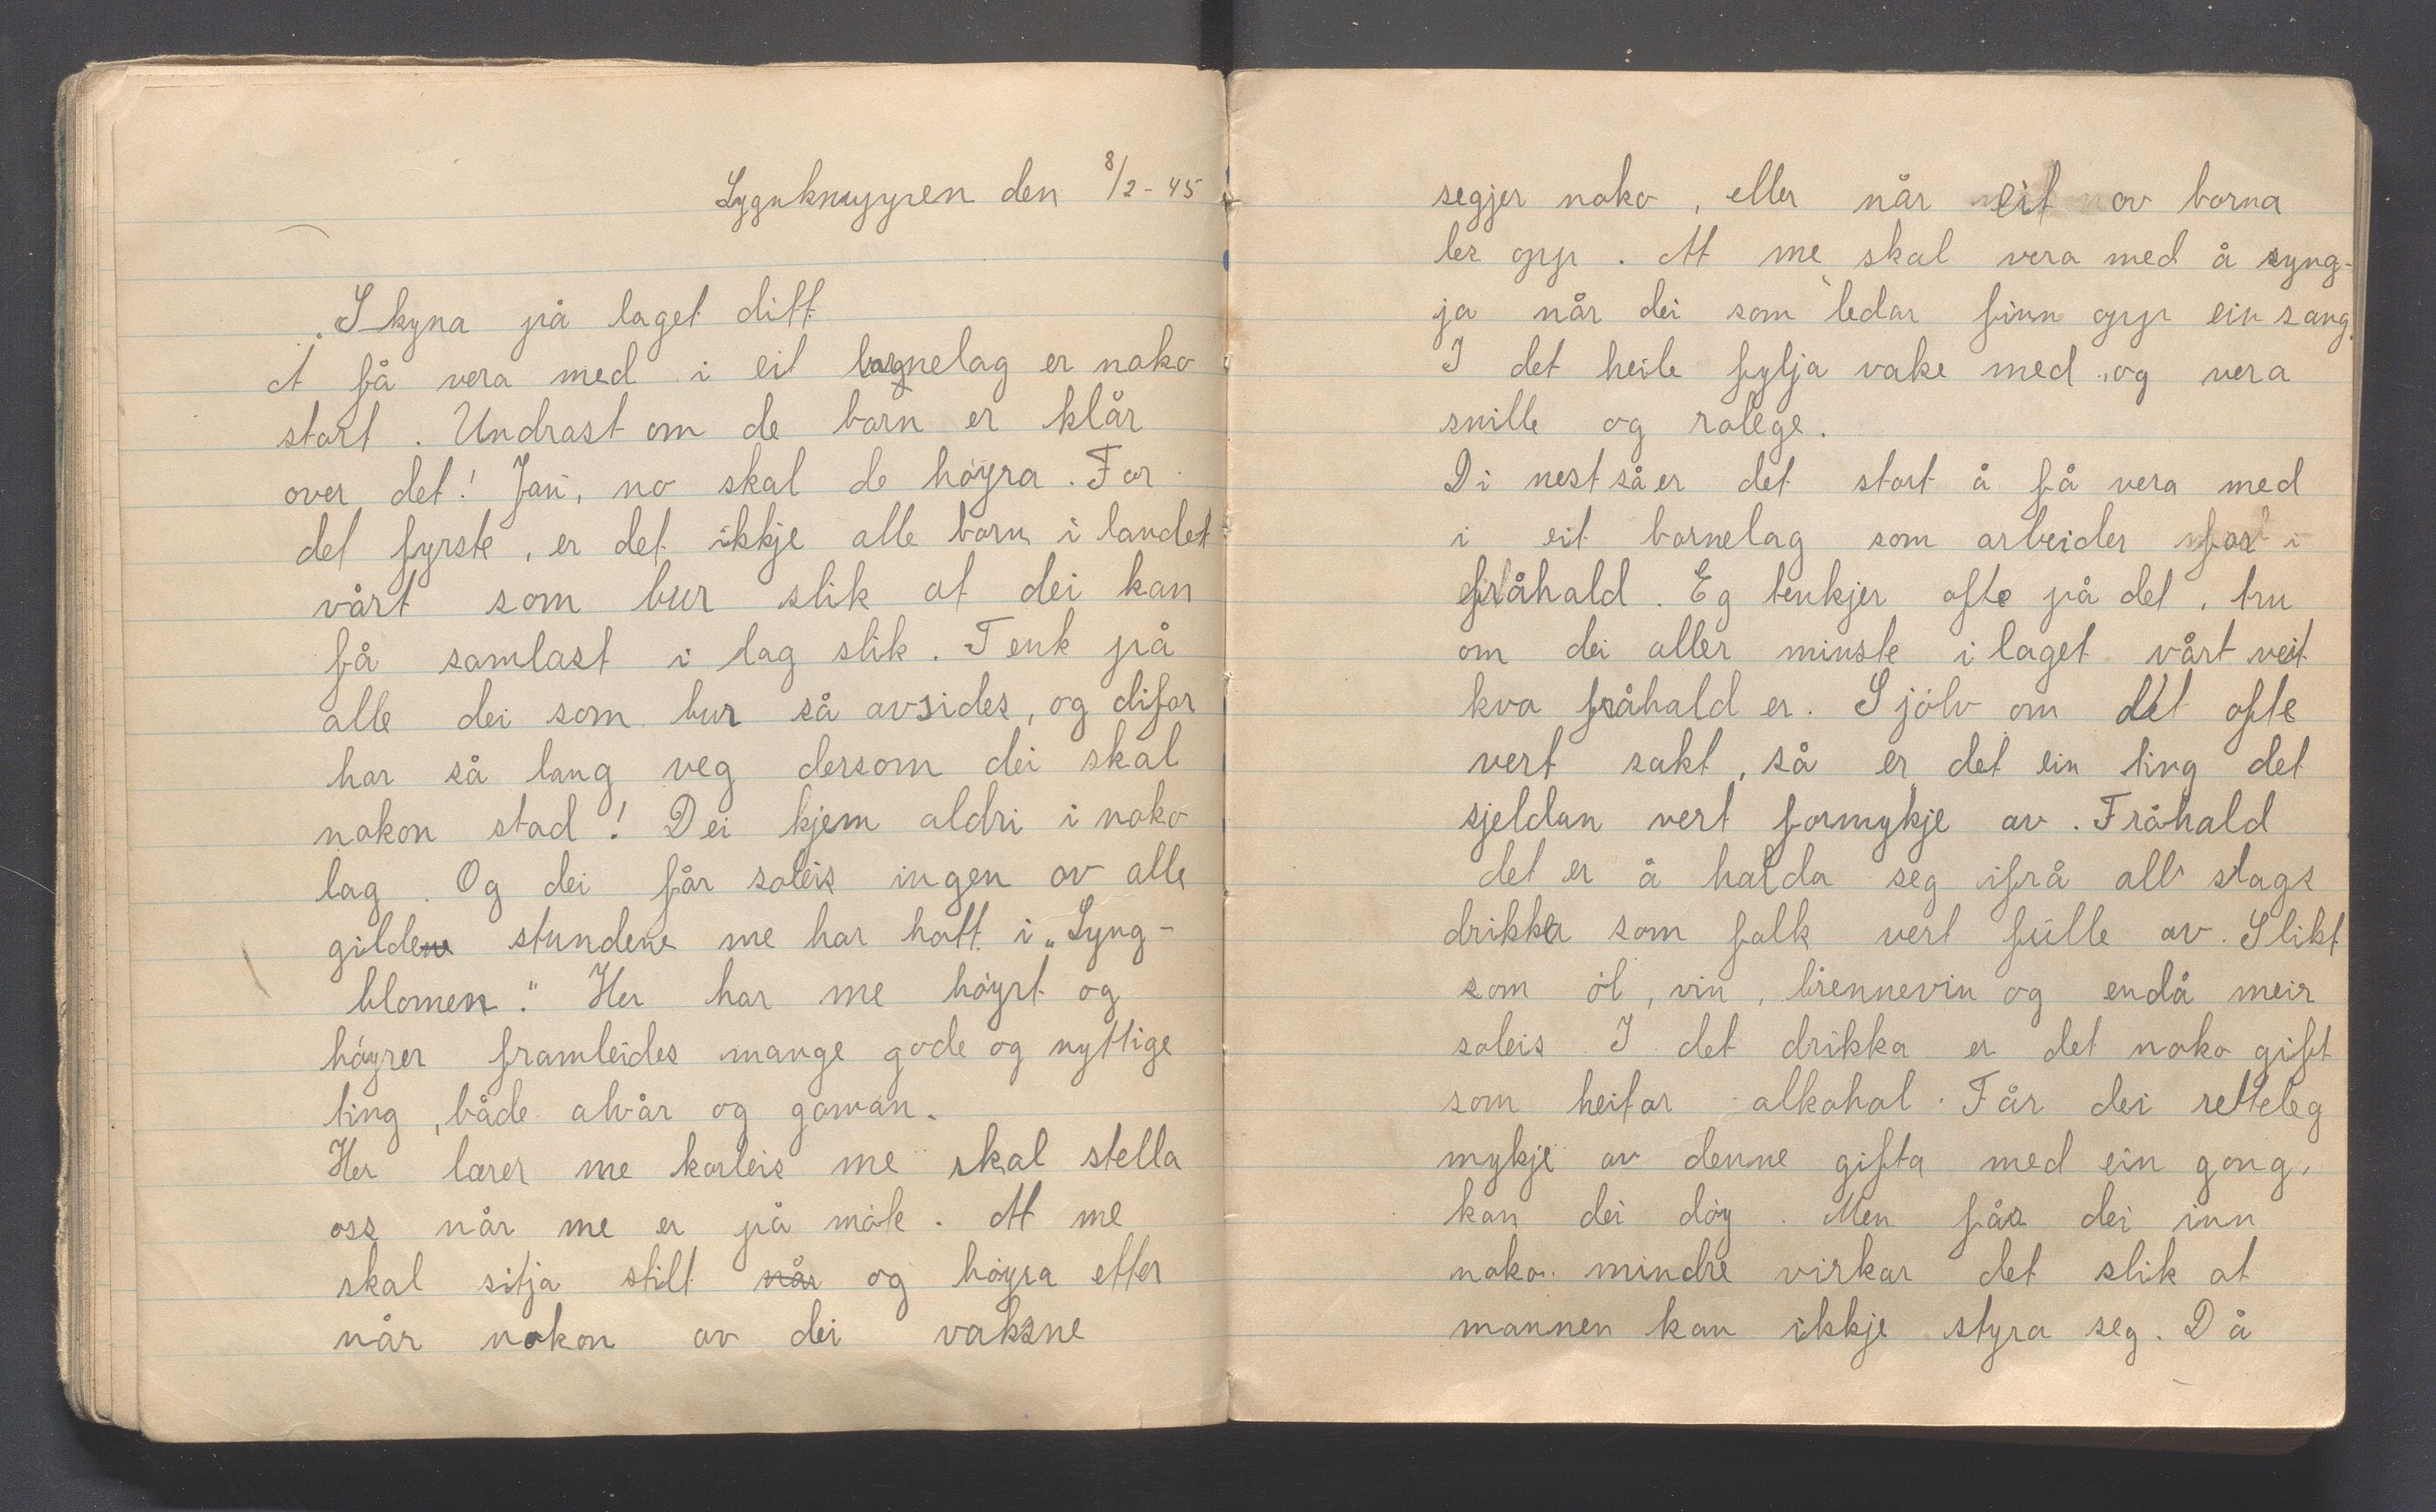 Lygnknuppen den 8/2-45
Skyna på laget ditt
At få vera med i eit barnelag er noko
stort. Undrast om de born er klår
over det! Jau, no skal de höyra. For
det fyrste, er det ikkje alle born i landet
vårt som bur slik at dei kan
få samlast i lag slik. Tenk på
alle dei som bur så avsides, og difor
har så lang veg dersom dei skal
nokon stad! Dei kjem aldri i noko
lag. Og dei får soleis ingen av alle
gildene stundene me har hatt i „Lyng-
blomen." Her har me höyrt og
höyrer framleides mange gode og nyttige
ting, både alvår og gaman.
Her lærer me korleis me skal stella
oss når me er på möte. At me
skal sitja stilt når og höyra etter
når nokon av dei vaksne
segjer noko, eller når eit av borna
les opp. At me skal vera med å syng-
ja når dei som ledar finn opp ein sang.
I det heile fylja vake med, og vera
snille og rolege.
Di nest så er det stort å få vera med
i eit bornelag som arbeider for
fråhald. Eg tenkjer ofte på det, tru
om dei aller minste i laget vårt veit
kva fråhald er. Sjölv om det ofte
vert sakt, så er det ein ting det
sjeldan vert formykje av. Fråhald
det er å halda seg ifrå all slags
drikka som folk vert fulle av. Slikt
som öl, vin, brennevin og endå meir
soleis. I det drikka er det noko gift
som heitar alkohol. Får dei retteleg
mykje av denne gifta med ein gong,
kan dei döy. Men får dei inn
noko mindre virkar det slik at
mannen kan ikkje styra seg. Då